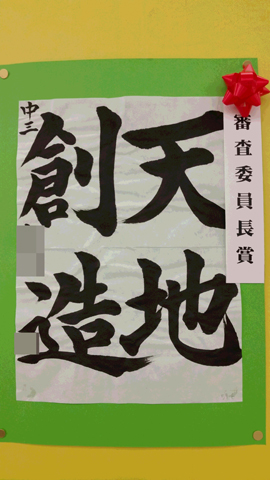 天地
創造
中三
審査委員長賞